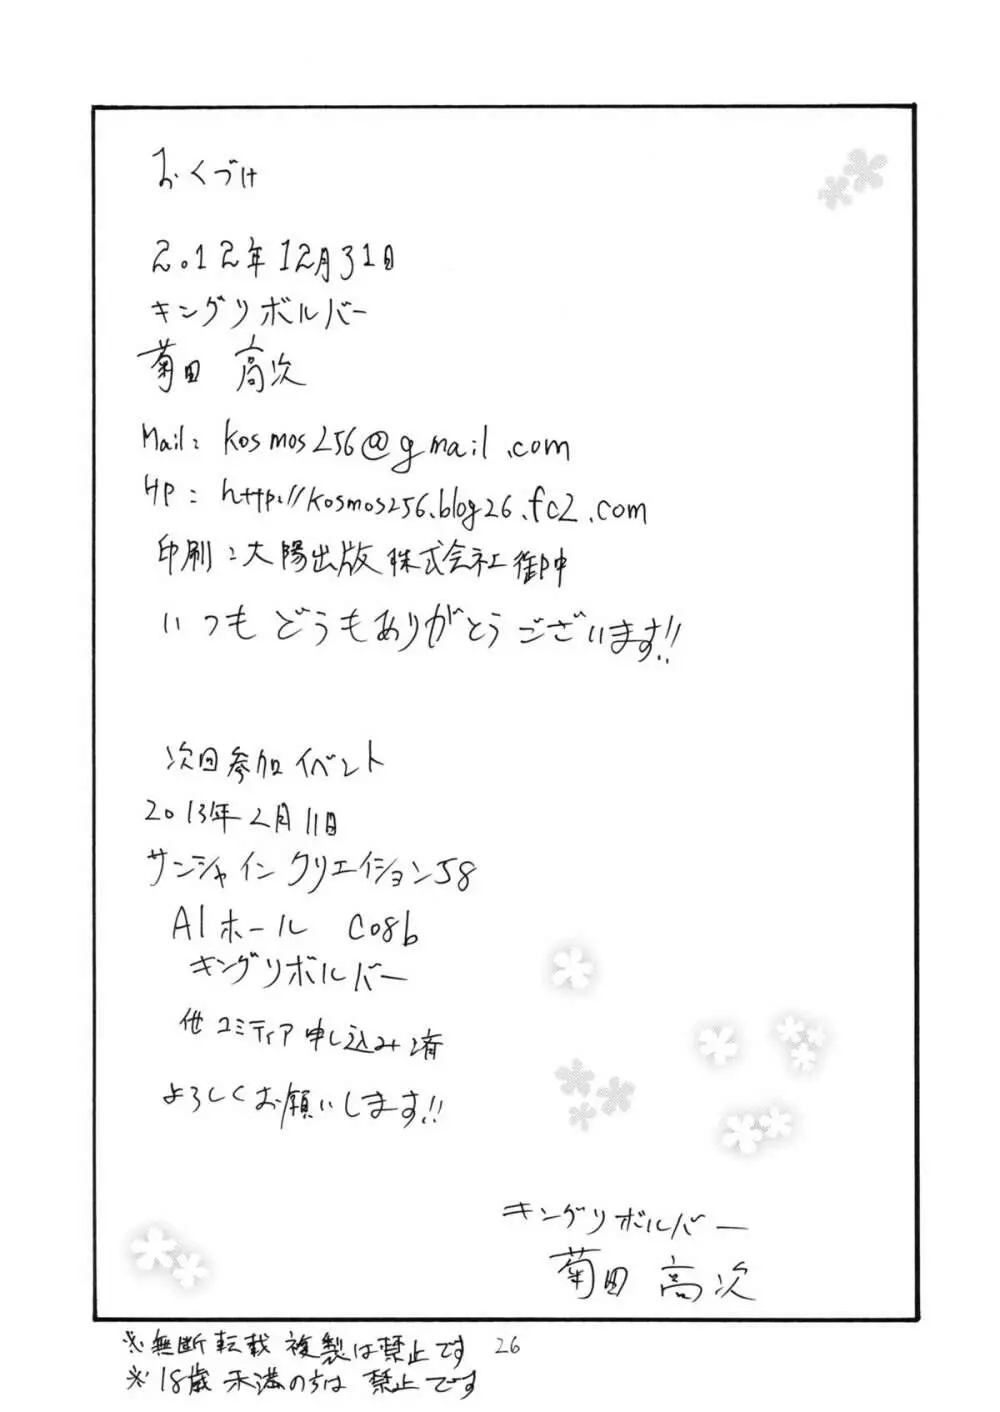 おくづけ
2012年12月31日
キングリボルバー
菊田 高次
Mail: kosmos256@gmail.com
HP: http://kosmos256.blog26.fc2.com
印刷:大陽出版株式会社御中
いつもどうもありがとうございます!!
次回参加イベント
2013年2月11日
サンシャインクリエイション58
A1ホール C08b
キングリボルバー
他コミティア申し込み済
よろしくお願いします!!
キングリボルバー
菊田 高次
※無断転載 複製は禁止です 26
※18歳未満の方は禁止です